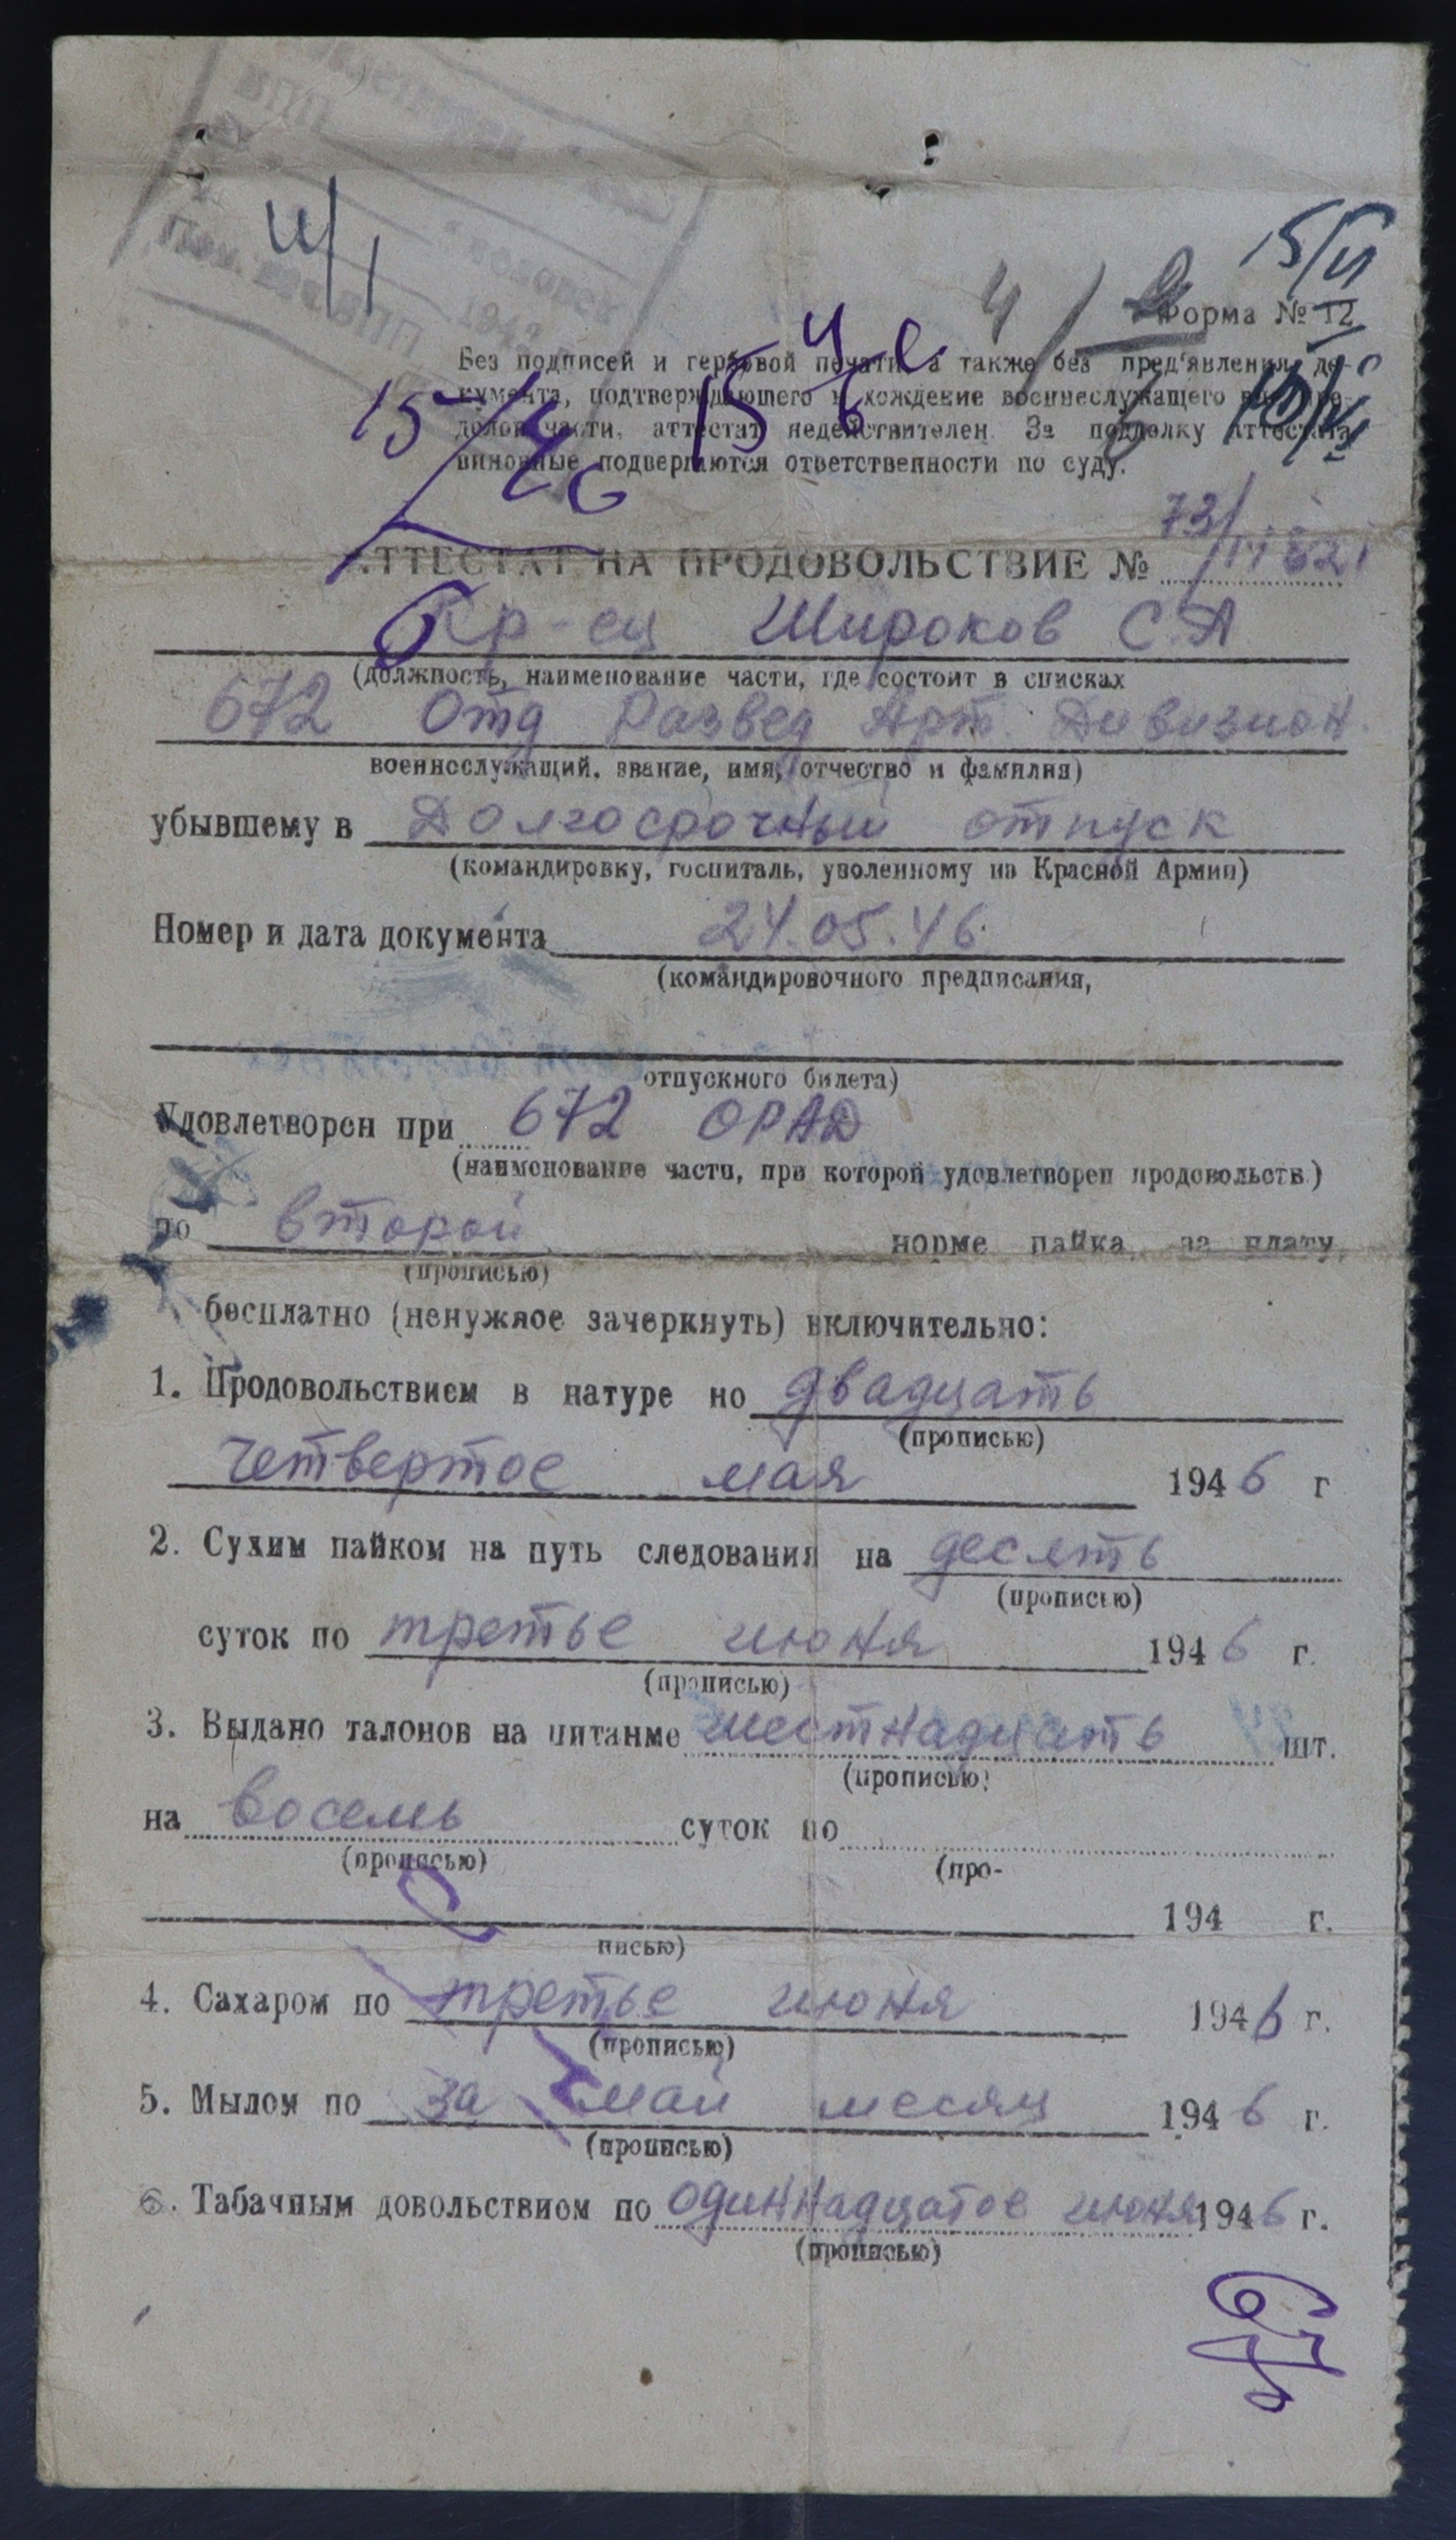 ВПП
194
Пом. нач. ВПП
4/1
15/VI
4/
Форма № 12
Без подписей и гербовой печати а также без пред'явления до-
кумента, подтверждающего нахождение военнослужащего вне пре-
делов части, аттестат недействителен. За подделку аттестата
виновные подвергаются ответственности по суду.
15/
15
6
АТТЕСТАТ НА ПРОДОВОЛЬСТВИЕ № 73/
Кр-ец Широков С.А
(должность, наименование части, где состоит в списках
672 Отд Развед Арт. Дивизион.
военнослужащий, звание, имя, отчество и фамилия)
убывшему в Долгосрочный отпуск
(командировку, госпиталь, уволенному из Красной Армии)
Номер и дата документа 24.05.46.
(командировочного предписания,
отпускного билета)
Удовлетворен при 672 ОРАД
(наименование части, при которой удовлетворен продовольств.)
по второй норме пайка, за плату,
(прописью)
бесплатно (ненужное зачеркнуть) включительно:
1. Продовольствием в натуре по двадцать
(прописью)
четвертое мая 1946 г
2. Сухим пайком на путь следования на десять
(прописью)
суток по третье июня 1946 г.
(прописью)
3. Выдано талонов на питание шестнадцать шт.
(прописью)
на восемь суток по
(прописью) (про-
194 г.
писью)
4. Сахаром по третье июня 1946 г.
(прописью)
5. Мылом по за май месяц 1946 г.
(прописью)
6. Табачным довольствием по одиннадцатое июня 1946 г.
(прописью)